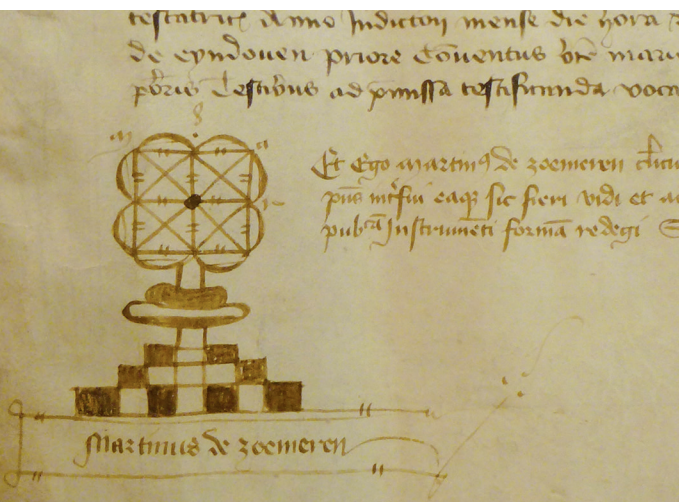 testatric̄ Anno Indictoñ mense die hora
de eyndouen priore Cōuentus btē marie
testibus ad p̄missa testificanda voca
Et Ego Martinꝰ de zoemeren cl̄icu
p̄ns int̄fui eaqꝫ sic fieri vidi et au
Instrumēti formā redegi S
Martinus de zoemeren